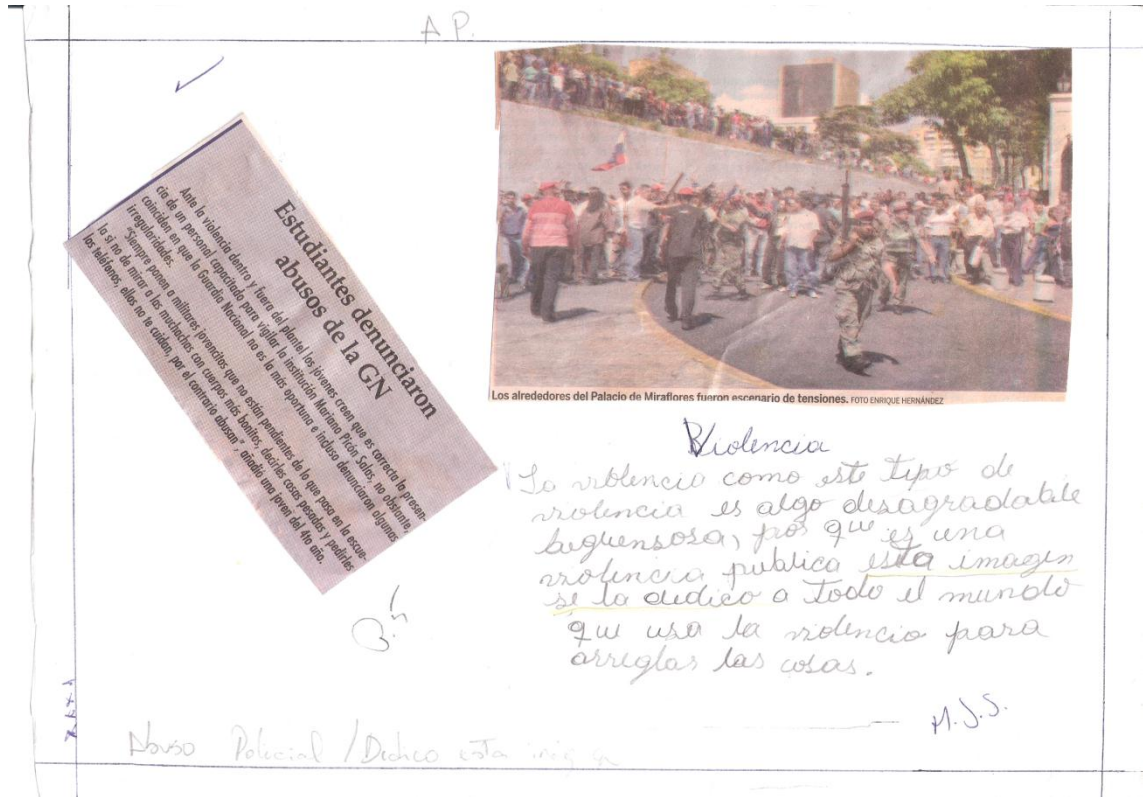 A P.
Estudiantes denunciaron
abusos de la GN
Ante la violencia dentro y fuera del plantel los jóvenes creen que es correcta la presen-
cia de un personal capacitado para vigilar la institución Mariano Picón Salas, no obstante,
coinciden en que la Guardia Nacional no es la más oportuna e incluso denunciaron algunas
irregularidades.
"Siempre ponen a militares jovencitos que no están pendientes de lo que pasa en la escue-
la si no de mirar a las muchachas con cuerpos más bonitos, decirles cosas pesadas y pedirles
los teléfonos, ellos no te cuidan, por el contrario abusan", añadió una joven del 4to año.
Los alrededores del Palacio de Miraflores fueron escenario de tensiones. FOTO ENRIQUE HERNÁNDEZ
Violencia
La violencia como este tipo de
violencia es algo desagradable
berguensosa, por que es una
violencia publica esta imagen
se la dedico a todo el mundo
que usa la violencia para
arreglar las cosas.
M.J.S.
Abuso Policial / Dedico esta